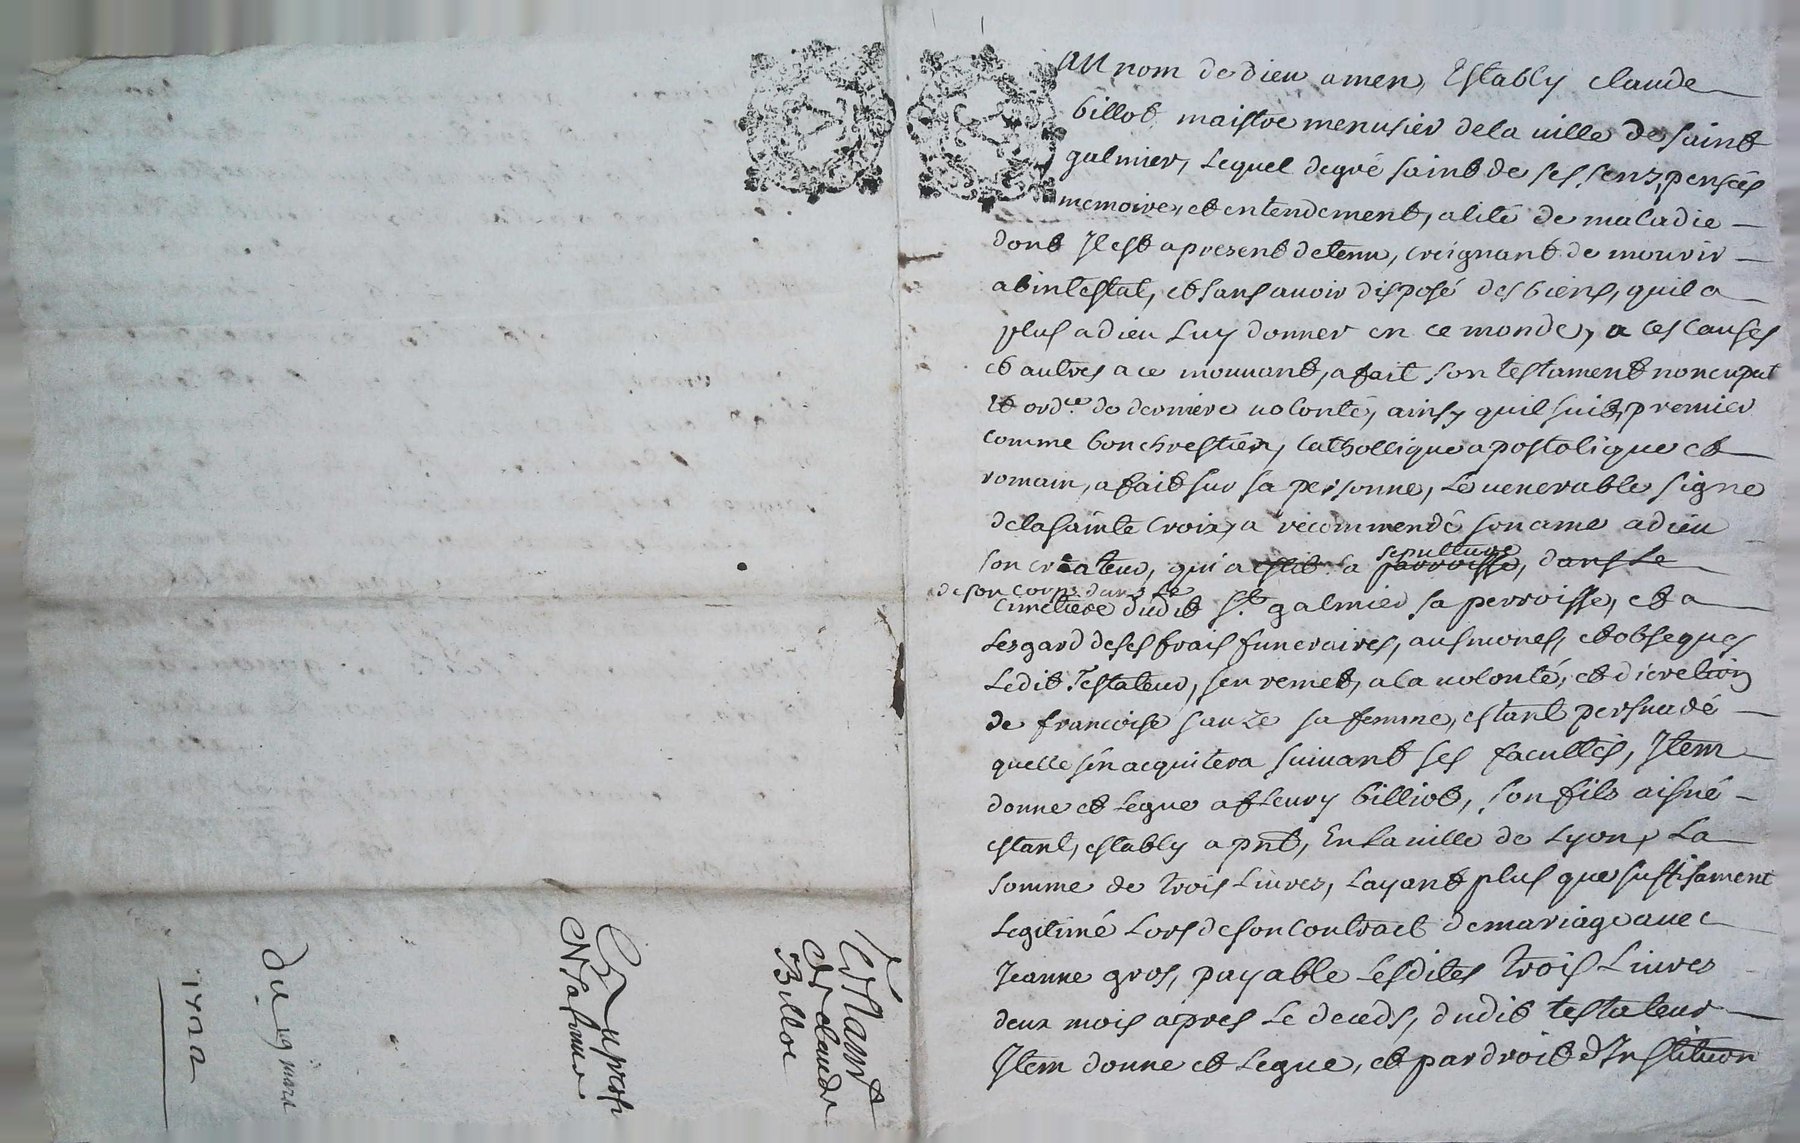 Au nom de dieu amen, Estably claude
billot maistre menusier de la ville de saint
galmier, Lequel de gré saint de ses sens, pensées
memoire, et entendement, alité de maladie
dont Il est a present detenu, creignant de mourir
abintestat, et sans avoir disposé des biens, quil a
plus a dieu Luy donner en ce monde, a ces causes
et autres a ce mouvant, a fait son testament noncupat
et ord.ce de derniere volonté, ainsy quil suit, premier
comme bon chrestien, Cathollique apostolique et
romain, a fait sur sa personne, Le venerable signe
de la sainte Croix, a recommendé son ame a dieu
son créateur, qui a eslit sa parroisse, dans Le
sepulture
de son corps dans Le
cimetiere dudit St. galmier sa perroisse, et a
Lesgard de ses frais funeraires, ausmones, et obseques
Ledit Testateur, sen remet, a la volonté, et dicretion
de francoise sauze sa femme, estant persuadé
quelle sen acquitera suivant ses facultés, Item
donne et Legue a fleury billiot, son fils aisné
estant, estably a pnt, En La ville de Lyon, La
somme de trois Livres, Layant plus que suffisament
Legitimé Lors de son Contract de mariage avec
Jeanne gros, payable Lesdites trois Livres
deux mois apres Le deceds, dudit testateur
Item donne et Legue, et par droit d'Institution
Testament
de claude
Billot
Du 19 mars
1722